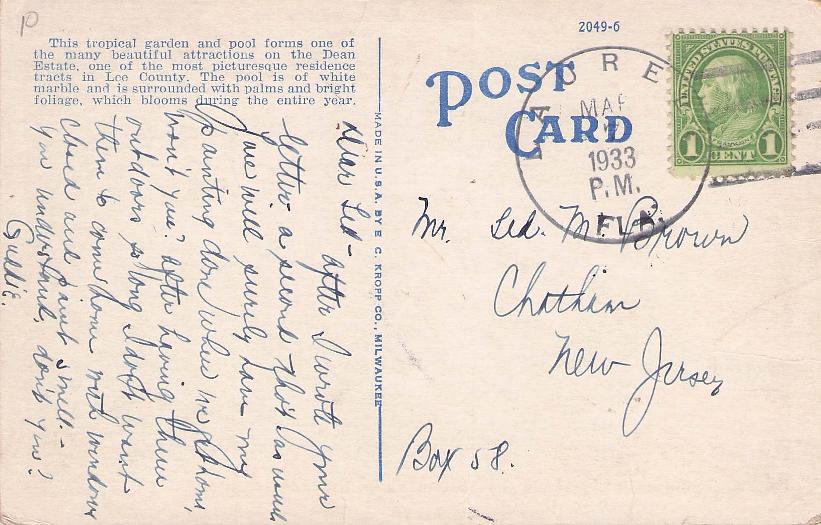 p
2049-6
This tropical garden and pool forms one of
the many beautiful attractions on the Dean
Estate, one of the most picturesque residence
tracts in Lee County. The pool is of white
marble and is surrounded with palms and bright
foliage, which blooms during the entire year.
POST
CARD
LAUREL
MAR
1933
P.M.
FLA.
UNITED STATES POSTAGE
FRANKLIN
1 CENT 1
MADE IN U.S.A. BY E. C. KROPP CO., MILWAUKEE
Dear Led - after I wrote your
letter - a second tho't as
you will surely have my
painting done when we get home,
won't you? After having them
outdoors so long I don't want
them to come home with windows
closed and paint smell. -
you understand, don't you?
Goldie.
Mr. Led. M. Brown
Chatham
New Jersey
Box 58.